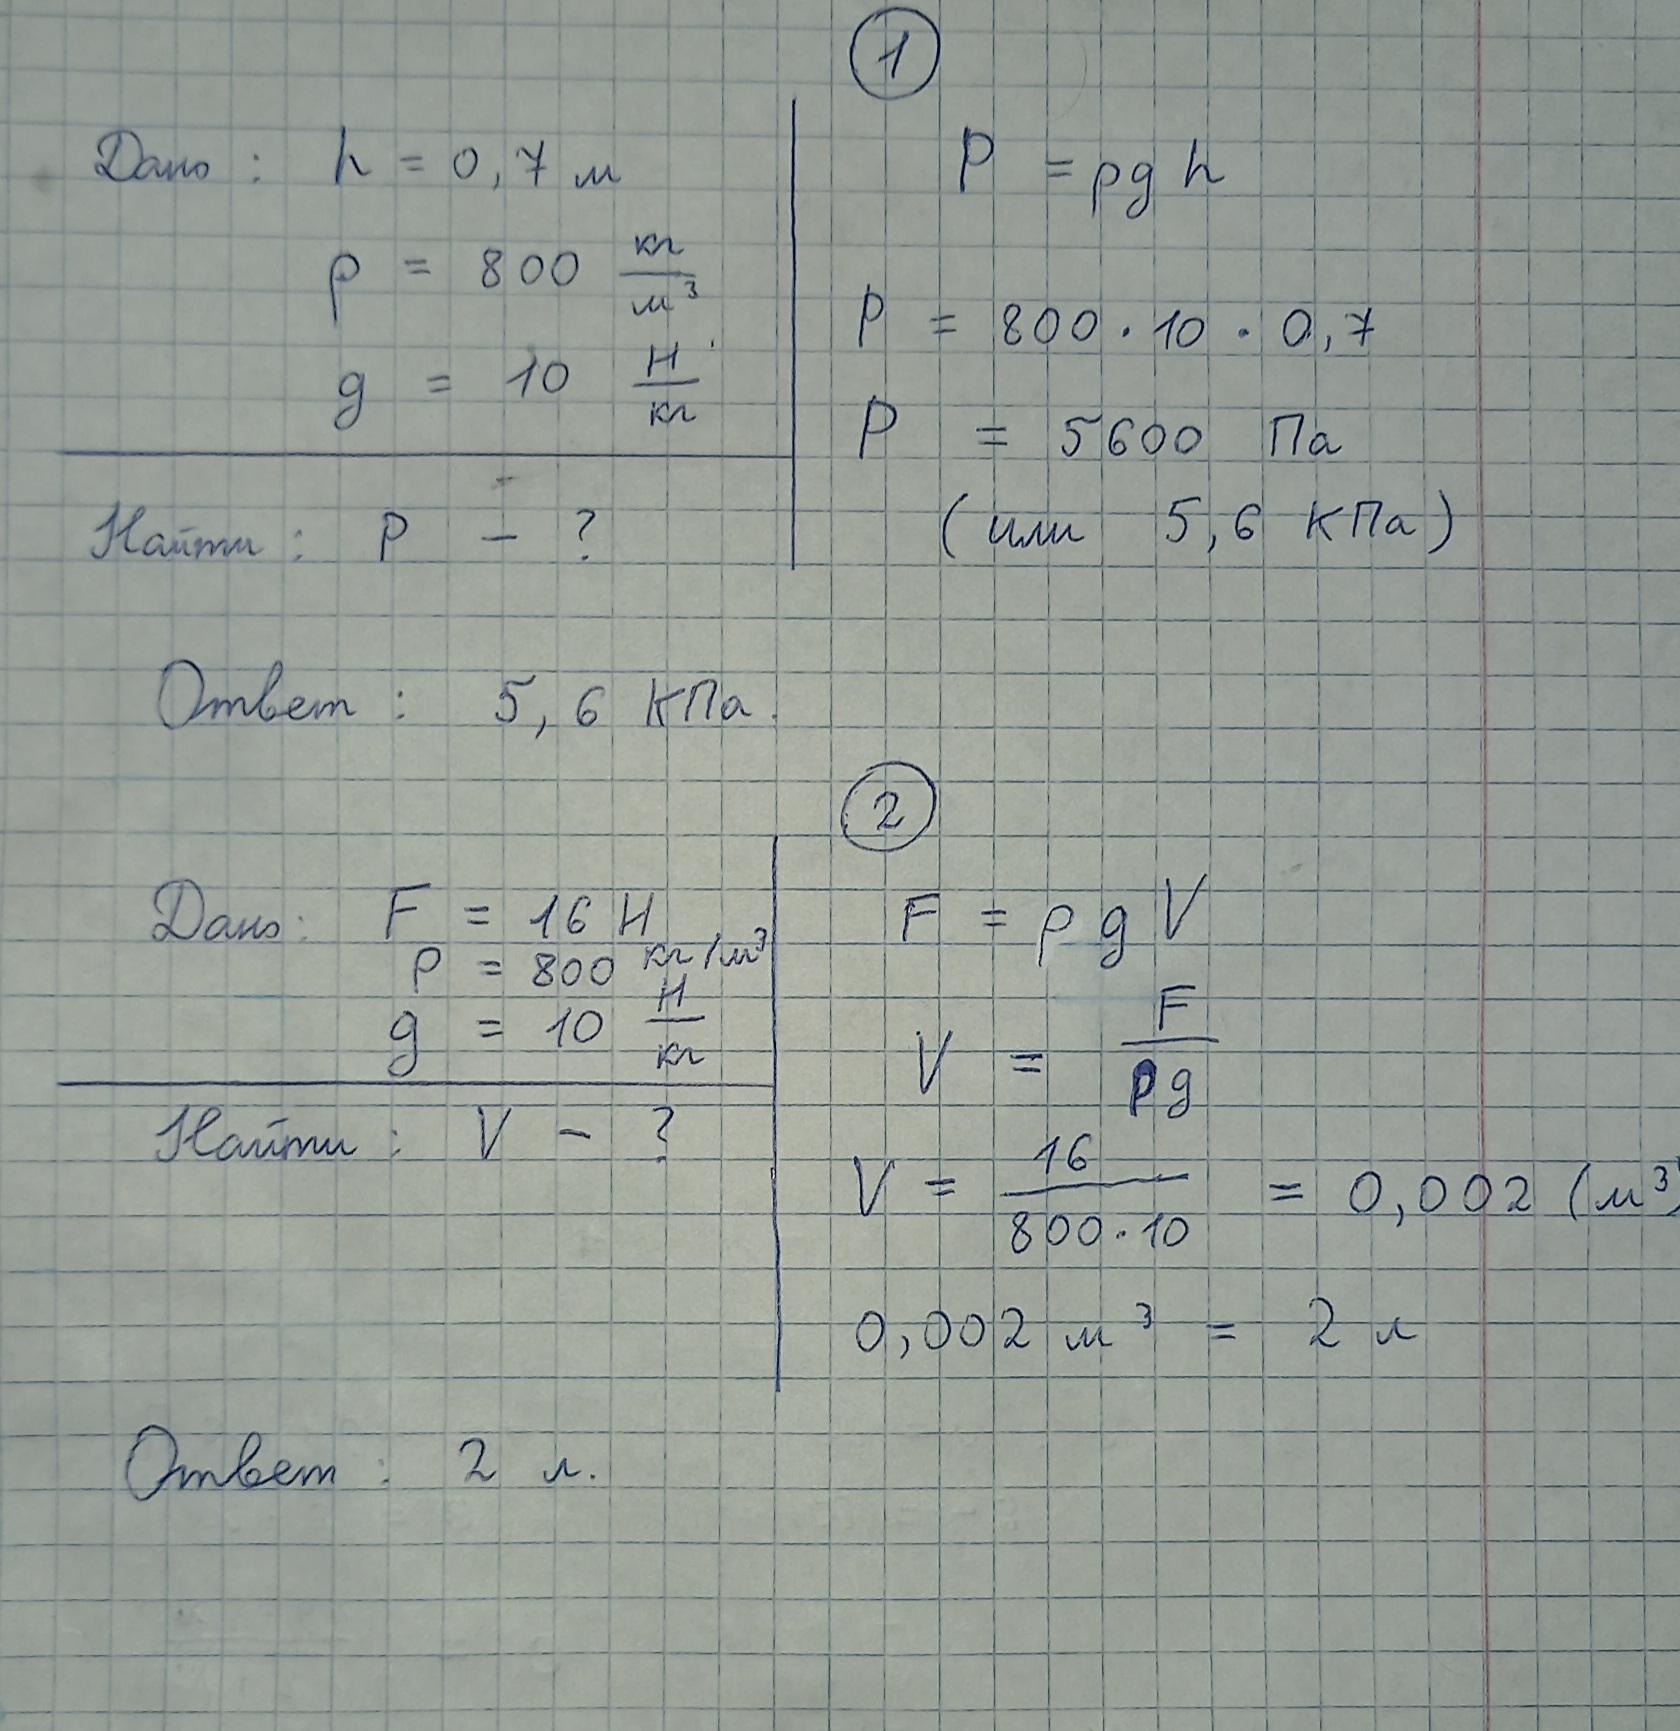 1
Дано: h = 0,7 м
ρ = 800 кг/м³
g = 10 Н/кг
Найти: P - ?
P = ρgh
P = 800 · 10 · 0,7
P = 5600 Па
(или 5,6 КПа)
Ответ: 5,6 КПа.
2
Дано: F = 16 Н
ρ = 800 кг/м³
g = 10 Н/кг
Найти: V - ?
F = ρgV
V = F/ρg
V = 16/800·10 = 0,002 (м³)
0,002 м³ = 2 л
Ответ: 2 л.